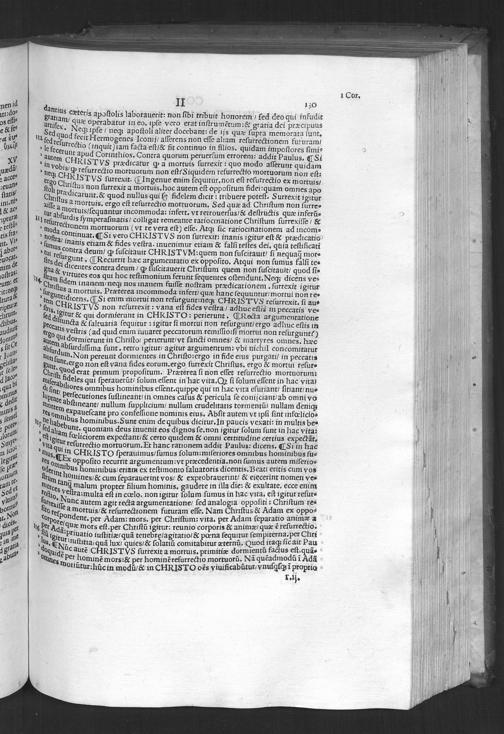 1 Cor.
II 130
dantius cæteris apostolis laborauerit: non sibi tribuit honorem/ sed deo qui insudit
gratiam/ quæ operabatur in eo. ipse vero erat instrumētum: & gratia dei præcipuus
artifex. Neq; ipse/ neq; apostoli aliter docebant: de iis quæ supra memorata sunt.
Sed quod fecit Hermogenes Iconij/ asserens non esse aliam resurrectionem futuram/
sed resurrectio/ inquit/ iam facta est/& sic continuo in filios. quidam impostores simi-
le fecerunt apud Corinthios. Contra quorum peruersum errorem: addit Paulus. ¶ Si
autem CHRISTVS prædicatur q a mortuis surrexit: quo modo asserunt quidam
in vobis: q resurrectio mortuorum non est? Si quidem resurrectio mortuorum non est:
neq; CHRISTVS surrexit. ¶ Ingenue enim sequitur. non est resurrectio ex mortuis/
ergo Christus non surrexit a mortuis. hoc autem est oppositum fidei: quam omnes apo
stoli prædicarunt. & quod nullus qui są fidelem dicit: tribuere potest. Surrexit igitur
Christus a mortuis. ergo est resurrectio mortuorum. Sed quæ ad Christum non surre-
xisse a mortuis/ sequantur incommoda: infert. vt retrouersis/& destructis quæ inferūn
tur absurdis semperasanatis: colligat remanente ratiocinatione Christum surrexisse/ &
resurrectionem mortuorum (vt re vera est) esse. Atq; sic ratiocinationem ad incom-
moda continuat. ¶ Si vero CHRISTVS non surrexit: inanis igitur est & prædicatio
nostra/ inanis etiam & fides vestra. inuenimur etiam & falsi testes dei. quia testificati
sumus contra deum/ q suscitauit CHRISTVM: quem non suscitauit/ si nequaq̄ mor-
tui resurgunt. ¶ Recurrit hæc argumentatio ex opposito. Atqui non sumus falsi te-
stes dei dicentes contra deum/ q suscitauerit Christum quem non suscitauit/ quod si-
gna & virtutes eoa quæ hoc testimonium ferunt sequentes ostendunt. Neq; dicens ve-
stram fidem inanem: neq; nos inanem fuisse nostram prædicationem. surrexit igitur
Christus a mortuis. Præterea incommoda infert quæ hanc sequuntur/ mortui non re-
surgunt: dicens. ¶ Si enim mortui non resurgunt: neq; CHRISTVS resurrexit. si au-
tem CHRISTVS non resurrexit: vana est fides vestra/ adhuc estis in peccatis ve-
stris. igitur & qui dormierunt in CHRISTO: perierunt. ¶ Recta argumentatione
sed disiuncta & saltuaria sequitur: igitur si mortui non resurgunt/ ergo adhuc estis in
peccatis vestris (ad quid enim iuuaret peccatorum remissio/ si mortui non resurgunt?)
ergo qui dormierunt in Christo: perierunt/ vt sancti omnes/ & martyres omnes. hæc
autem absurdissima sunt. retro igitur agitur argumentum: vbi nichil concomitatur
absurdum. Non pereunt dormientes in Christo: ergo in fide eius purgati/ in peccatis
non sunt. ergo non est vana fides eorum. ergo surrexit Christus. ergo & mortui resur-
gunt. quod erat primum propositum. Præterea si non esset resurrectio mortuorum:
Christi fideles qui sperauerūt/ solum essent in hac vita. Q; si solum essent in hac vita:
miserabiliores omnibus hominibus essent. quippe qui in hac vita esuriant/ sitiant/ nu-
di sint/ persecutiones sustineant/ in omnes casus & pericula se conijciant/ ab omni vo
luptate abstineant/ nullum supplicium/ nullam crudelitatis tormenta/ nullam deniq;
mortem expauescant pro confessione nominis eius. Absit autem vt ipsi sint infœlicio-
res omnibus hominibus. Sunt enim de quibus dicitur. In paucis vexati: in multis be-
ne habebunt. quoniam deus inuenit eos dignos se. non igitur solum sunt in hac vita:
sed aliam fœliciorem expectant/ & certo quidem & omni certitudine certius expectāt.
est igitur resurrectio mortuorum. Et hanc rationem addit Paulus: dicens. ¶ Si in hac
vita qui in CHRISTO sperauimus/ sumus solum: miseriores omnibus hominibus su-
mus. ¶ Ex opposito recurrit argumentum: vt precedentia. non sumus autem miserio-
res omnibus hominibus/ eritis ex testimonio saluatoris dicentis. Beati eritis cum vos
oderint homines/ & cum separauerint vos/ & exprobrauerint/ & eiecerint nomen ve-
strum tanq̄ malum propter filium hominis. gaudete in illa die: & exultate. ecce enim
merces vestra: multa est in cœlo. non igitur solum sumus in hac vita. est igitur resur-
rectio. Nunc autem agit recta argumentatione: sed analogia oppositi: Christum re-
surrexisse a mortuis/ & resurrectionem futuram esse. Nam Christus & Adam ex oppo-
sito respondent. per Adam: mors. per Christum: vita. per Adam separatio animæ a
corpore/ quæ mors est. per Christū igitur: reunio corporis & animæ/ quæ ē resurrectio.
per Adā priuatio iustitiæ/ quā tenebræ/ agitatio/ & pœna sequitur sempiterna. per Chri
stū igitur iustitia/ quā lux/ quies/ & solatiū comitabitur æternū. Quod itaq; sic ait Pau
lus. ¶ Nūc autē CHRISTVS surrexit a mortuis. primitiæ dormientū factus est. quā-
doquidē per hominē mors: & per hominē resurrectio mortuorū. Nā quēadmodū ī Adā
omnes moriūtur: hūc in modū/ & in CHRISTO oēs viuificabūtur/ vnusq̄sq; ī proprio
r.ij.